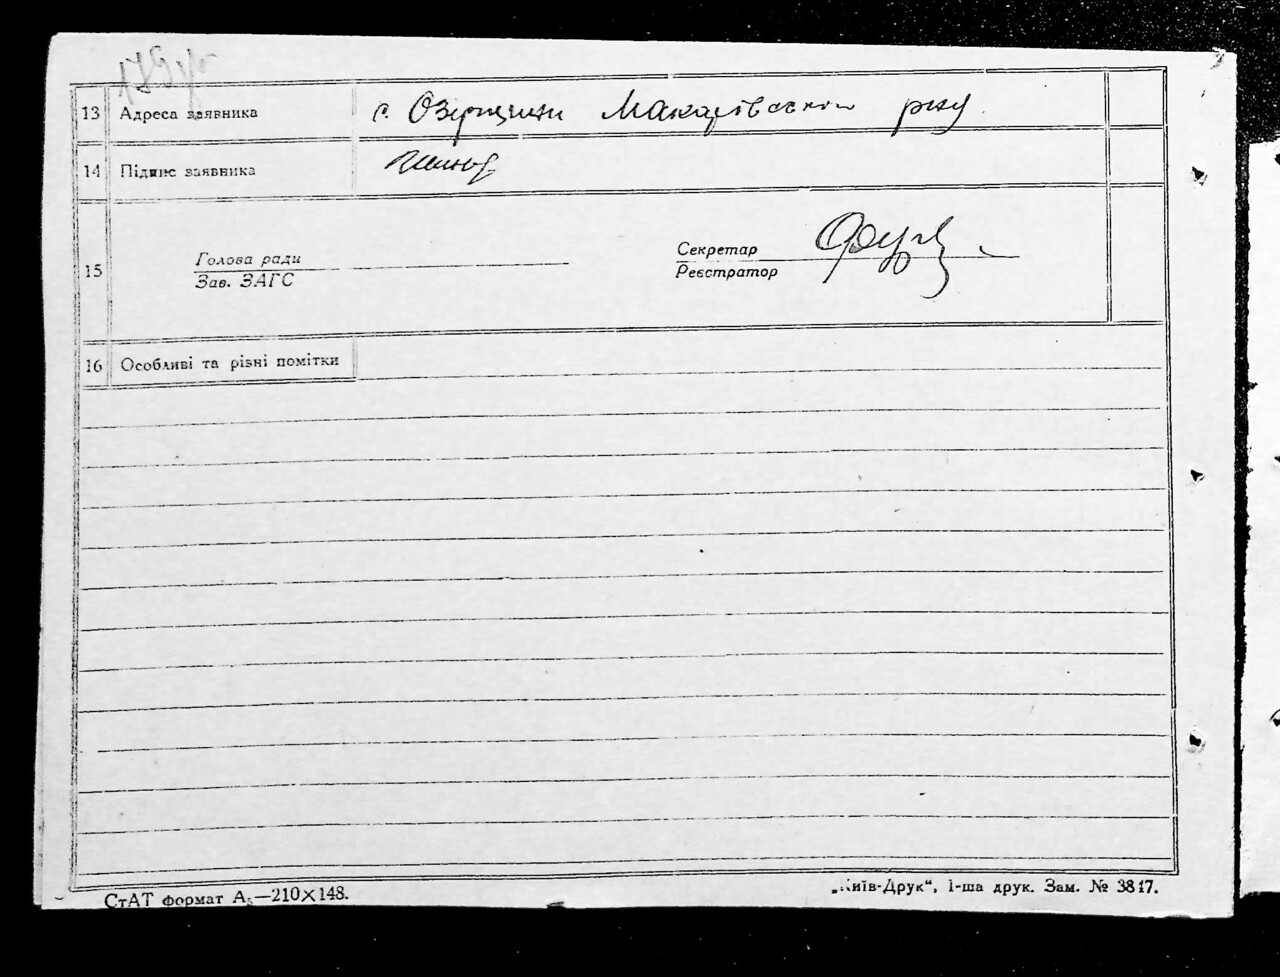 179
13 Адреса заявника с. Озерщини Макарівского р-ну
14 Підпис заявника
15 Голова ради
Зав. ЗАГС
Секретар
Реєстратор
16 Особливі та різні помітки
СтАТ формат А₅—210×148.
„Київ-Друк“, 1-ша друк. Зам. № 3817.